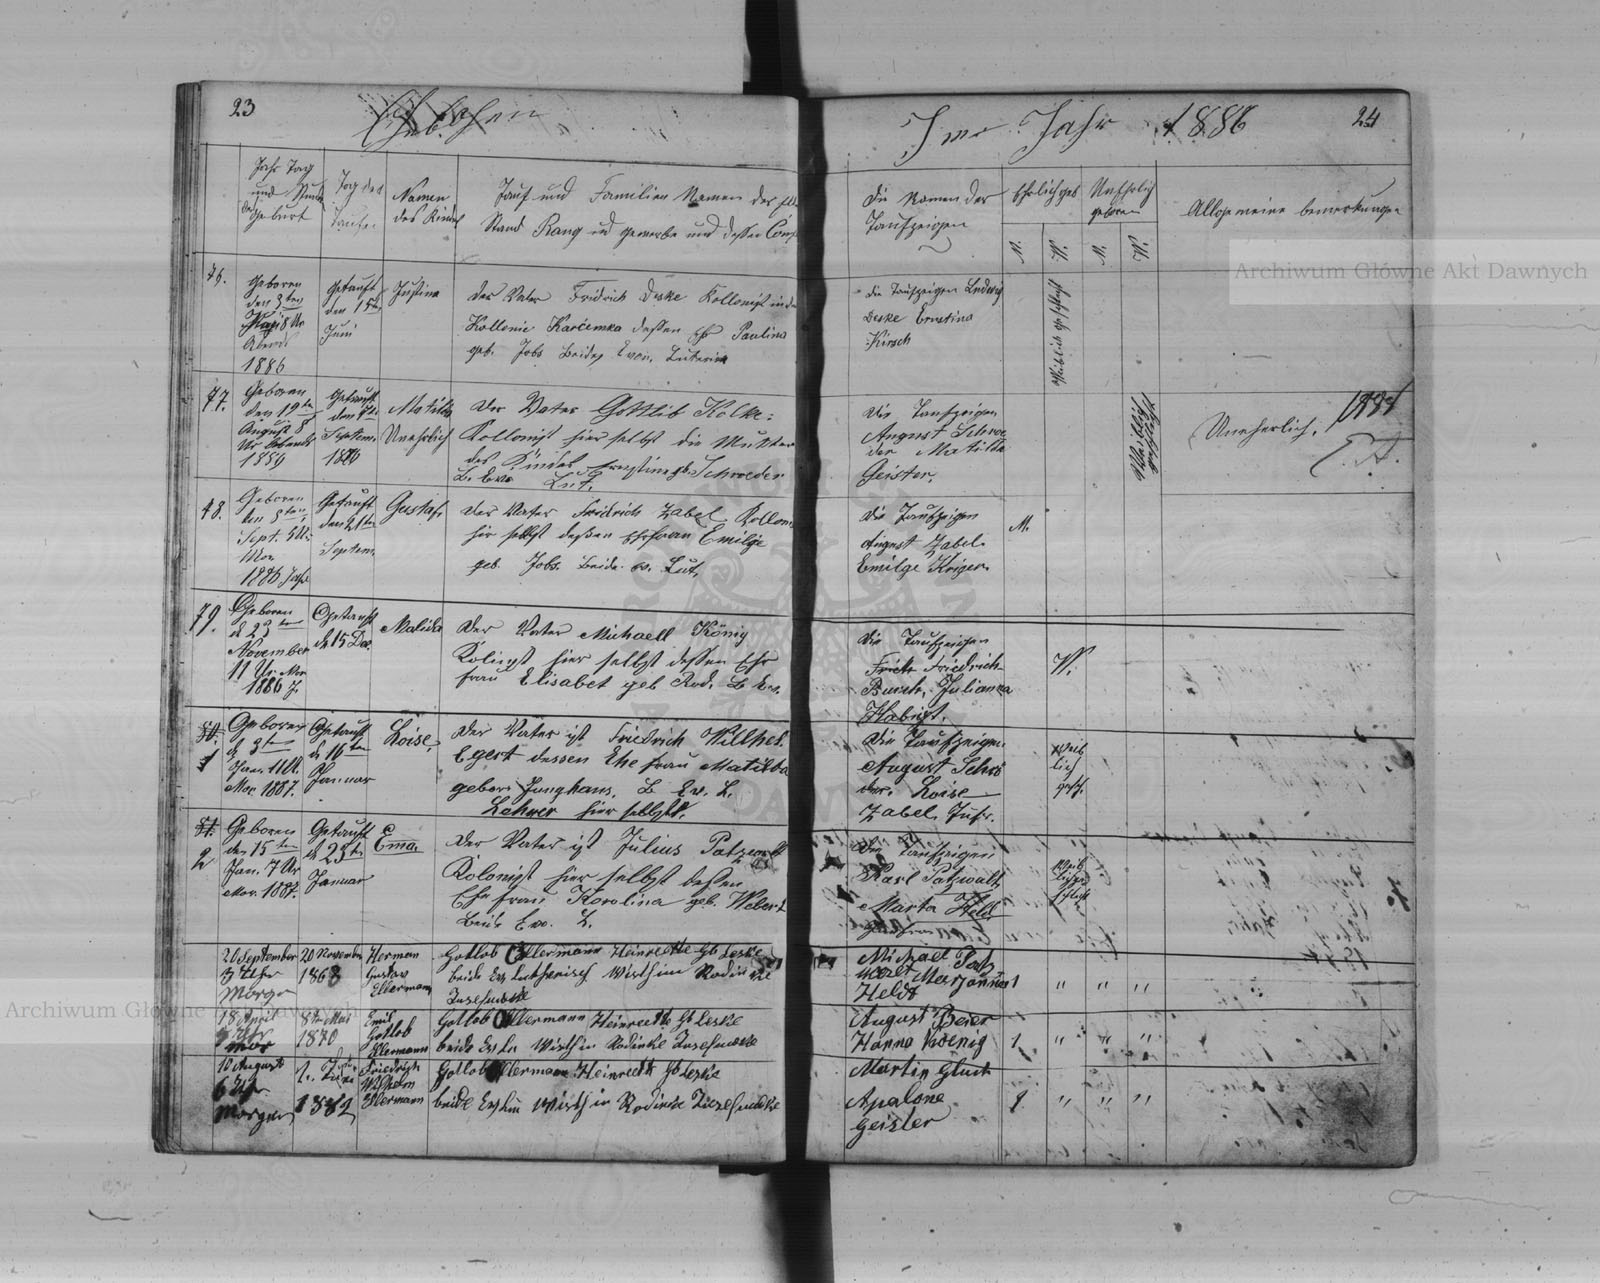 23
Im Jahr 1886
24
Jahr Tag
und Stunde
der
Geburt
Tag der
Taufe
Namen
des Kindes
Tauf und Familien Namen der
Stand Rang und Gewerbe und deßen
Die Namen der
Taufzeigen
Ehrlich geb
Unehrlich
geboren
M.
W.
M.
W.
Allgemeine bemerkungen
76.
Geboren
den 3ten
8 Ur
Abends
1886
Getauft
den 15ten
Juni
Justina
Der Vater Fridrich Deske Kollonist in der
Kollonie Karčemka deßen Ehe Paulina
geb. Jobs Beide Evan. Luterin
Die Taufzeigen Ludwig
Deske Ernstina
Kirsch
Weiblich geschlecht
77.
Geboren
den 19ten
August 8
Ur Abends
Getauft
den
Septem.
Matilda
Unehrlich
Der Vater Gottlib Kolke:
Kollonist hier selbst die Mutter
des Kindes Ernstine geb. Schroeder
B. Eva Lut.
Die Taufzeigen
August Schroe
der Matilda
Geister.
Weiblich
geschlecht
Uneherlich.
78.
Geboren
den 8ten
Sept. 5 Ur
Mor.
1886 Jahr
Getauft
den 21ten
Septem.
Gustaf
Der Vater Fridrich Zabel Kollon.
hir selbst deßen Ehefrau Emilge
geb. Jobs. Beide ev. Lut.
Die Taufzeigen
August Zabel.
Emilge Kriger.
M.
79.
Geboren
d 23ten
November
11 Ur Mor
1886 J.
Getauft
d 15 Dec.
Malida
Der Vater Michaell König
Kolinist hier selbst dessen Ehe
frau Elisabet geb Rod. B Ev.
Die Taufzeigen
Frich Friedrich
Busch, Julianna
Habigt.
W.
80.
1
Geboren
d 3ten
Jan. 11 Ur
Mor 1887.
Getauft
d 16ten
Januar
Loise.
Der Vater ist Friedrich Wilhel.
Egert dessen Ehe frau Matilda
geboren Junghans. B Ev. L.
Lehrer hier selbst.
Die Taufzeigen
August Schrö
der. Loise
Zabel, Jufr.
Weib
lich
gesch.
81.
2
Geboren
den 15ten
Jan. 7 Ur
Mor. 1887.
Getauft
d 23t
Januar
Ema.
Der Vater ist Julius Patzwalt
Kolonist hier selbst deßen
Ehe frau Karolina geb. Weber
Beide Ew. L.
Die Taufzeigen
Karl Patzwalt
Marta Held
Jungfrau
Weib
liches
schlecht
20 September
3 Uhr
Morge
20 November
1868
Herman
Gustaw
Ellermann
Gotlob Ellermann Heinreette Gb Leske
beide Ev Lutherisch Wirth in Rodinke
Michael Patz
Marjanna
Heldt
1 " " "
18 April
Uhr
Mor
8ten Mai
1870
Emil
Gotlob
Ellermann
Gotlob Ellermann Heinreette Gb Leske
beide Ev Lu Wirth in Rodinke
August Beier
Hanna Koenig
1 " " "
10 August
6 Uhr
Morgen
1882
Friedrich
Wilhelm
Ellermann
Gotlob Ellermann Heinreett Gb Leske
beide Ev Lu Wirth in Rodinke
Martin Gluck
Apalone
Geisler
1 " " "
Archiwum Główne Akt Dawnych
Archiwum Główne Akt Dawnych